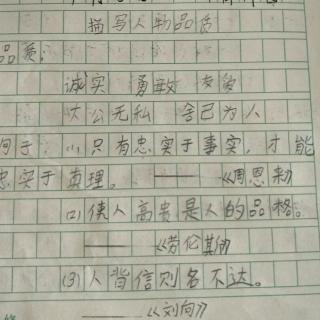 描写人物品质
品质:
诚实 勇敢 友负
大公无私 舍己为人
句子: (1)只有忠实于事实,才能
忠实于真理。——《周恩来》
(2)使人高贵是人的品格。
——《劳伦斯》
(3)人背信则名不达。
——《刘向》